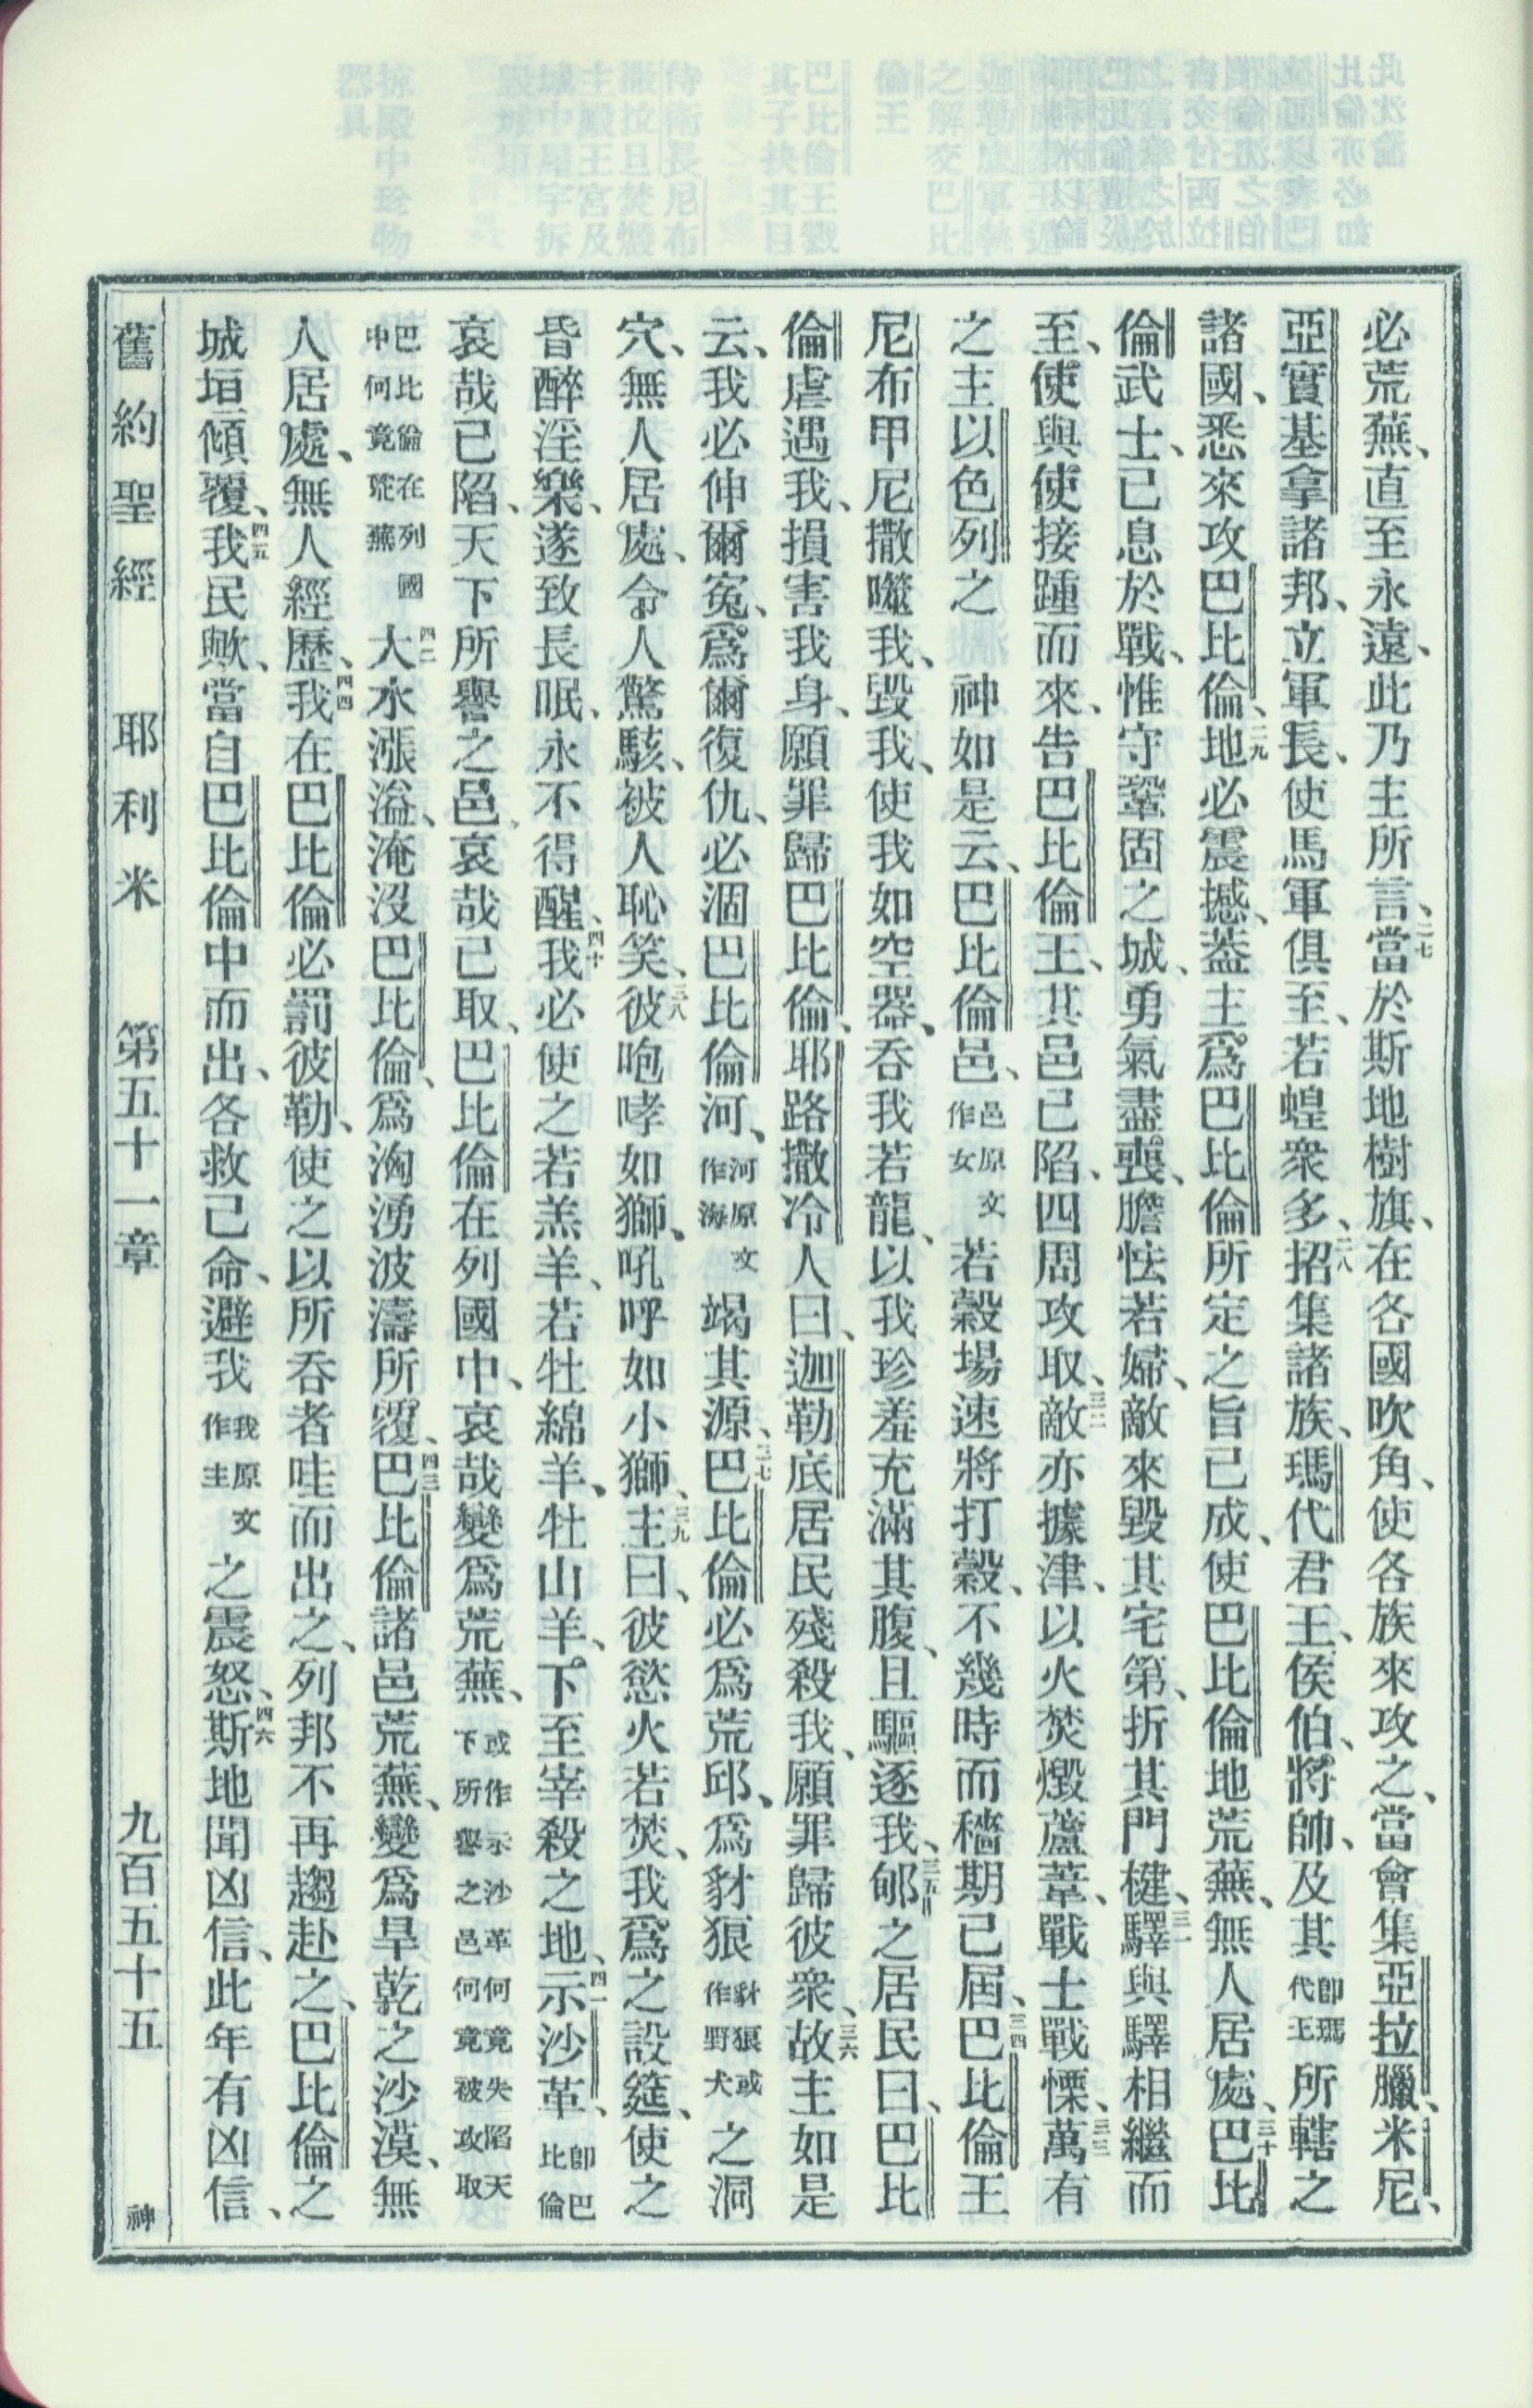 必荒蕪、直至永遠、此乃主所言、二七當於斯地樹旗、在各國吹角、使各族來攻之、當會集亞拉臘、米尼、
亞實基拿諸邦、立軍長、使馬軍俱至、若蝗衆多、二八招集諸族、瑪代君王、侯伯、將帥、及其卽瑪代王所轄之
諸國、悉來攻巴比倫、二九地必震撼、蓋主爲巴比倫所定之旨已成、使巴比倫地荒蕪、無人居處、三十巴比
倫武士、已息於戰、惟守鞏固之城、勇氣盡喪、膽怯若婦、敵來毀其宅第、折其門楗、三一驛與驛相繼而
至、使與使接踵而來、告巴比倫王、其邑已陷、四周攻取、三二敵亦據津、以火焚燬蘆葦、戰士戰慄、三三萬有
之主以色列之　神如是云、巴比倫邑、邑原文作女若穀場速將打穀、不幾時而穡期已屆、三四巴比倫王
尼布甲尼撒噬我、毀我、使我如空器、吞我若龍、以我珍羞充滿其腹、且驅逐我、三五郇之居民曰、巴比
倫虐遇我、損害我身、願罪歸巴比倫、耶路撒冷人曰、迦勒底居民殘殺我、願罪歸彼衆、三六故主如是
云、我必伸爾冤、爲爾復仇、必涸巴比倫河、河原文作海竭其源、三七巴比倫必爲荒邱、爲豺狼豺狼或作野犬之洞
穴、無人居處、令人驚駭、被人恥笑、三八彼咆哮如獅、吼呼如小獅、三九主曰、彼慾火若焚、我爲之設筵、使之
昏醉淫樂、遂致長眠、永不得醒、四十我必使之若羔羊、若牡綿羊、牡山羊、下至宰殺之地、四一示沙革、卽巴比倫
哀哉已陷、天下所譽之邑、哀哉已取、巴比倫在列國中、哀哉變爲荒蕪、或作示沙革何竟失陷天下所譽之邑何竟被攻取
巴比倫在列國中何竟荒蕪四二大水漲溢、淹沒巴比倫、爲洶湧波濤所覆、四三巴比倫諸邑荒蕪、變爲旱乾之沙漠、無
人居處、無人經歷、四四我在巴比倫必罰彼勒、使之以所吞者哇而出之、列邦不再趨赴之、巴比倫之
城垣傾覆、四五我民歟、當自巴比倫中而出、各救己命、避我我原文作主之震怒、四六斯地聞凶信、此年有凶信、
舊約聖經　耶利米　第五十一章　九百五十五　神